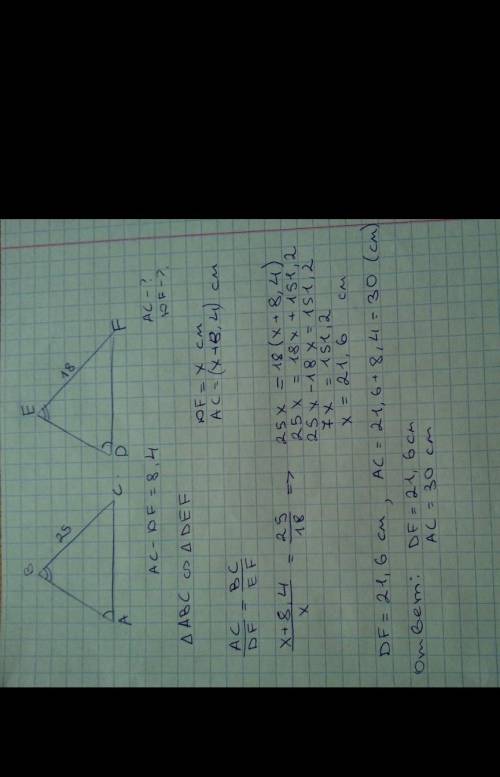 B E
25 18
A C D F
AC - DF = 8,4 AC - ?
DF - ?
ΔABC ∽ ΔDEF
DF = x см
AC = (x+8,4) см
AC/DF = BC/EF
(x+8,4)/x = 25/18 => 25x = 18(x+8,4)
25x = 18x + 151,2
25x - 18x = 151,2
7x = 151,2
x = 21,6 см
DF = 21,6 см, AC = 21,6 + 8,4 = 30 (см)
Ответ: DF = 21,6 см
AC = 30 см